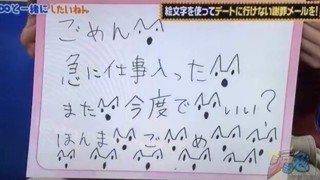 ∞と一緒にしたいねん
絵文字を使ってデートに行けない謝罪メールを!
ごめん
急に仕事入った
また 今度で いい?
ほんま ご め ん